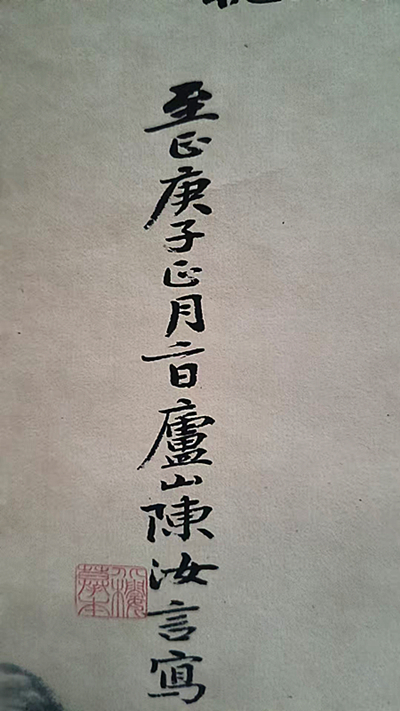 至正庚子正月二日廬山陳汝言寫